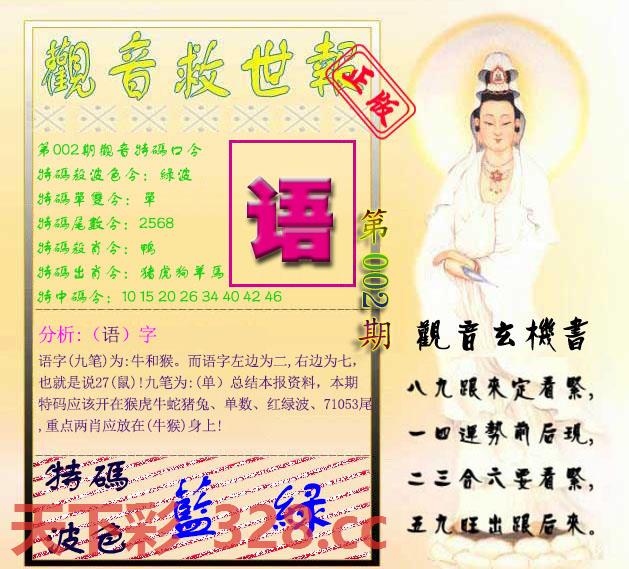 觀音救世報
正版
第002期觀音特碼口令
特碼殺波色令：綠波
特碼單雙令：單
特碼尾數令：2568
特碼殺肖令：鴨
特碼出肖令：猪虎狗羊馬
特中碼令：10 15 20 26 34 40 42 46
语
第002期
分析:（语）字
语字(九笔)为:牛和猴。而语字左边为二,右边为七,
也就是说27(鼠)!九笔为:(单）总结本报资料，本期
特码应该开在猴虎牛蛇猪兔、单数、红绿波、71053尾
,重点两肖应放在(牛猴)身上!
特碼
波色
藍 綠
天下彩-328.cc
觀音玄機書
八九跟來定看緊，
一四運勢前后現，
二三合六要看緊，
五九旺出跟后來。